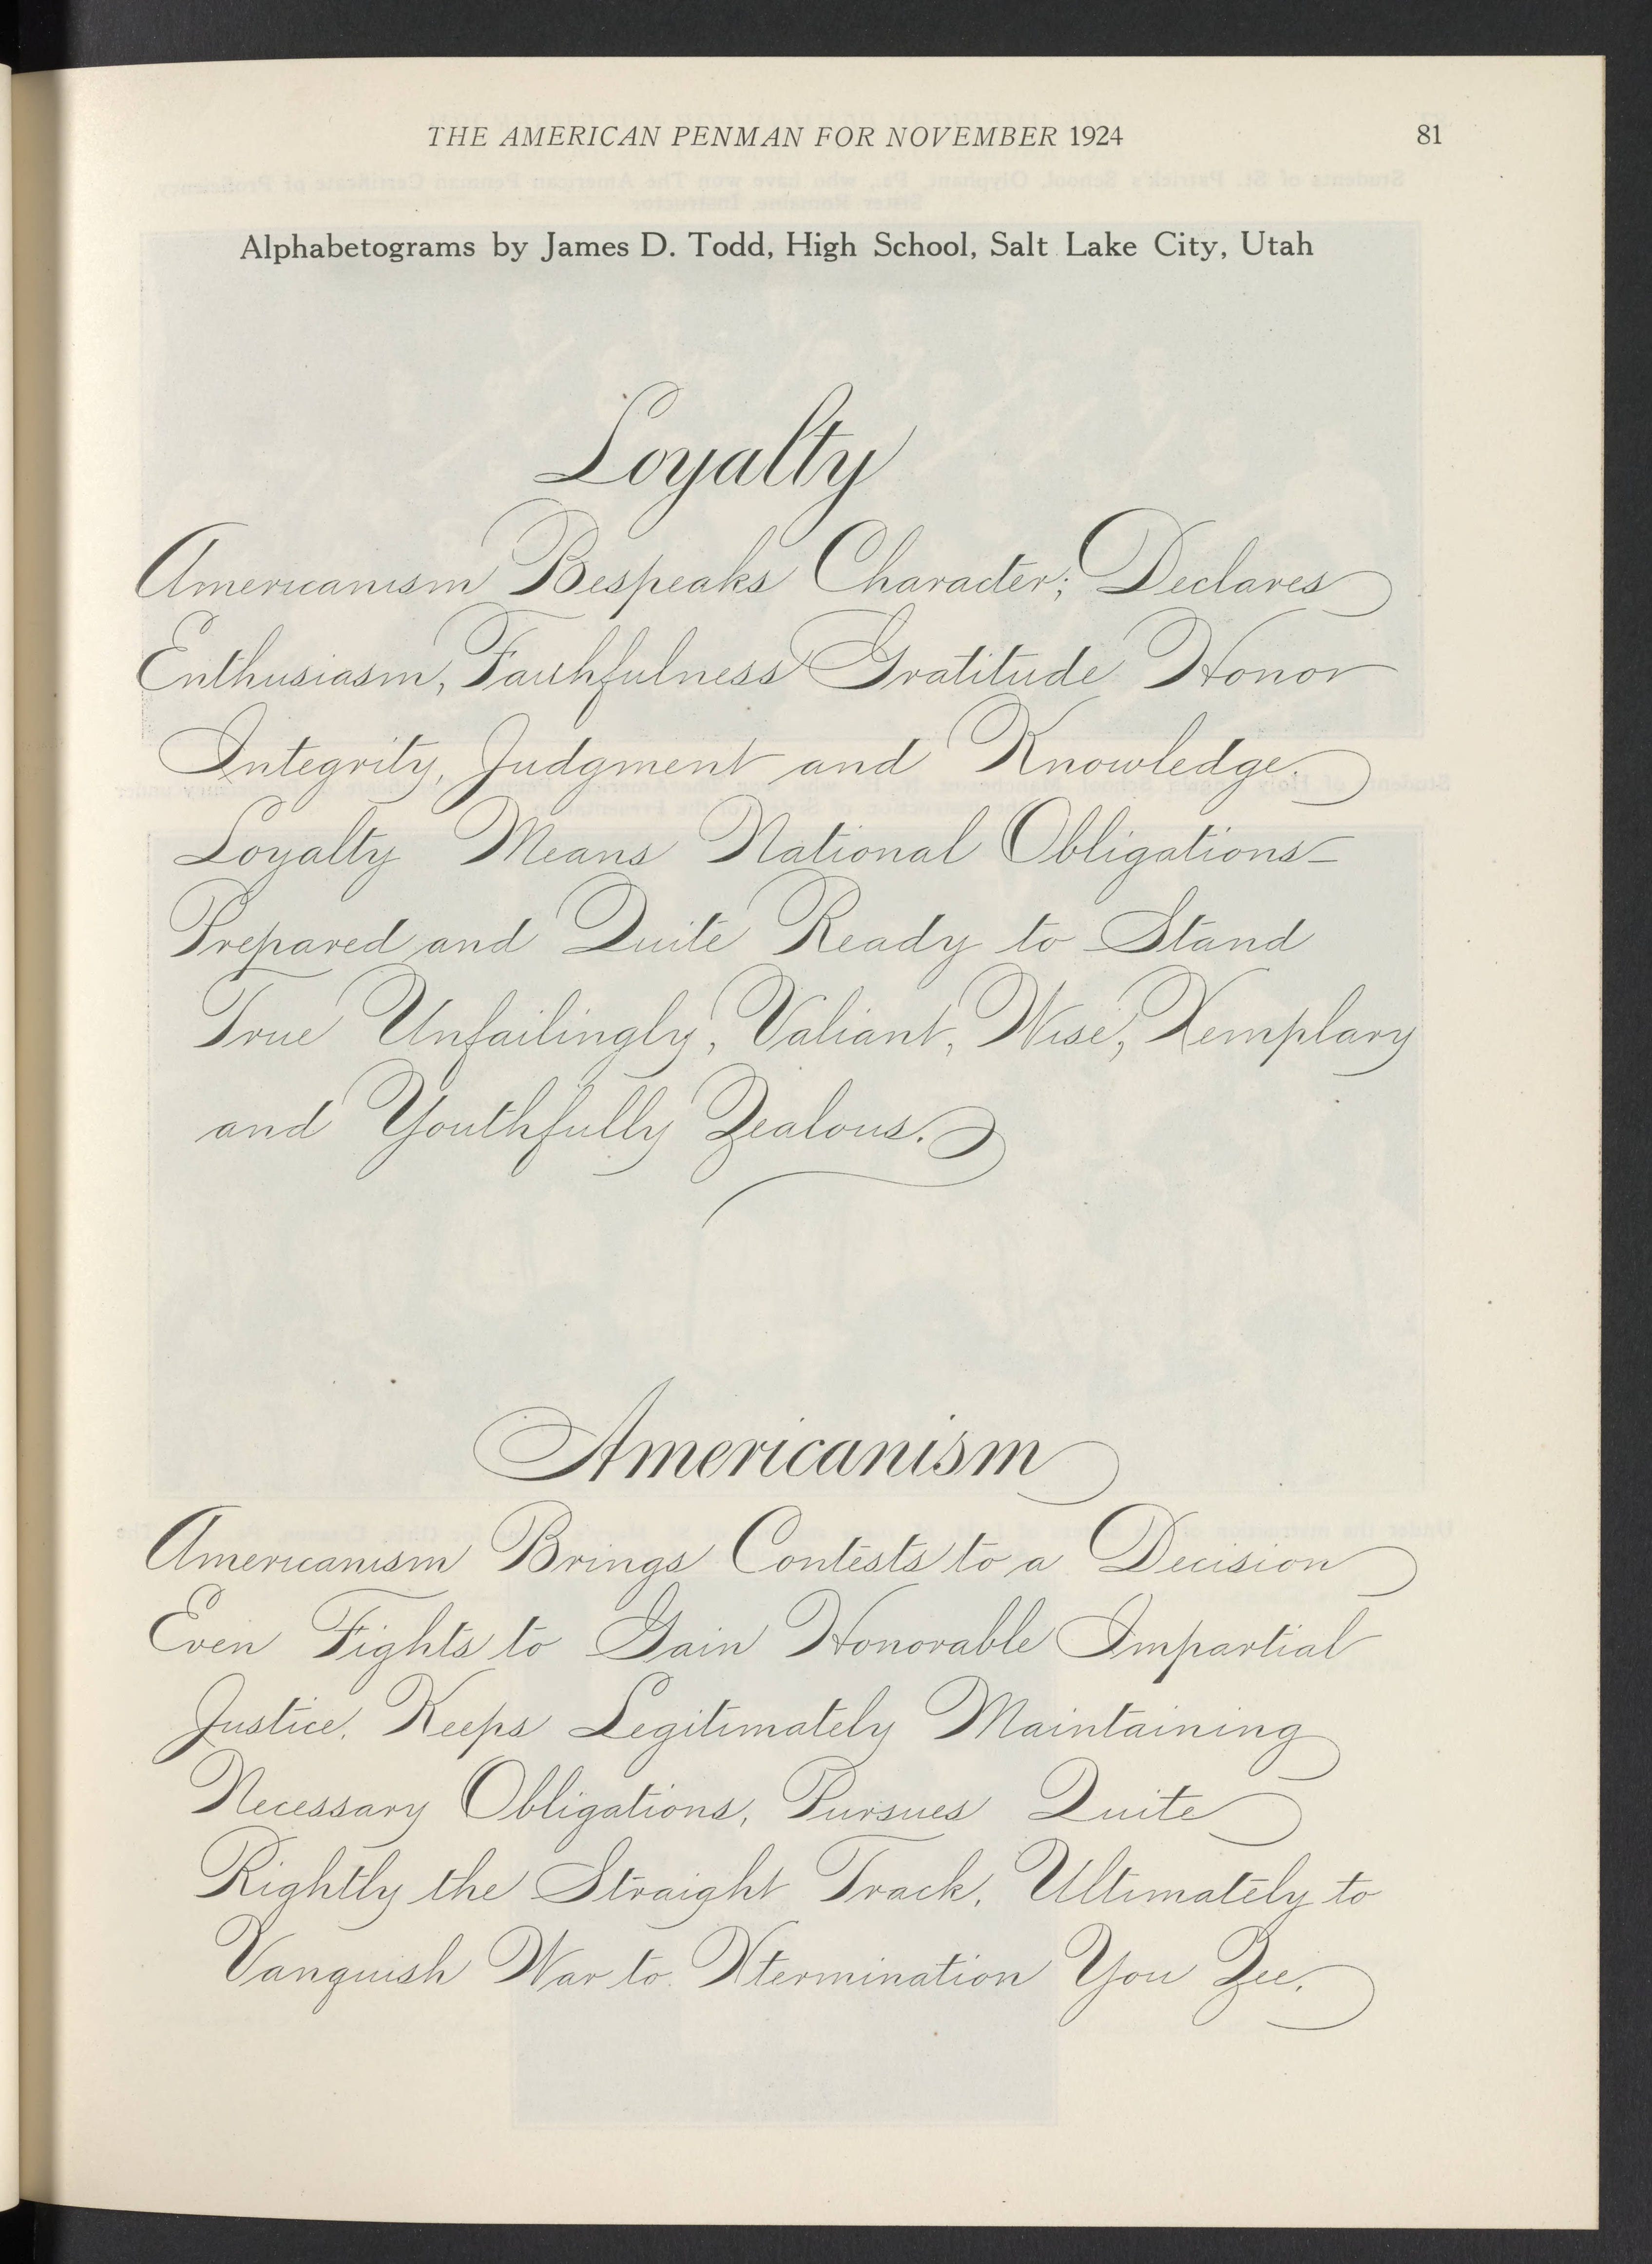 THE AMERICAN PENMAN FOR NOVEMBER 1924 81
Alphabetograms by James D. Todd, High School, Salt Lake City, Utah
Loyalty
Americanism Bespeaks Character; Declares
Enthusiasm, Faithfulness Gratitude Honor
Integrity, Judgment and Knowledge.
Loyalty Means National Obligations–
Prepared and Quite Ready to Stand
True Unfailingly, Valiant, Wise, Xemplary
and Youthfully Zealous.
Americanism
Americanism Brings Contests to a Decision
Even Fights to Gain Honorable Impartial
Justice. Keeps Legitimately Maintaining
Necessary Obligations, Pursues Quite
Rightly the Straight Track, Ultimately to
Vanquish War to Xtermination You Zee.